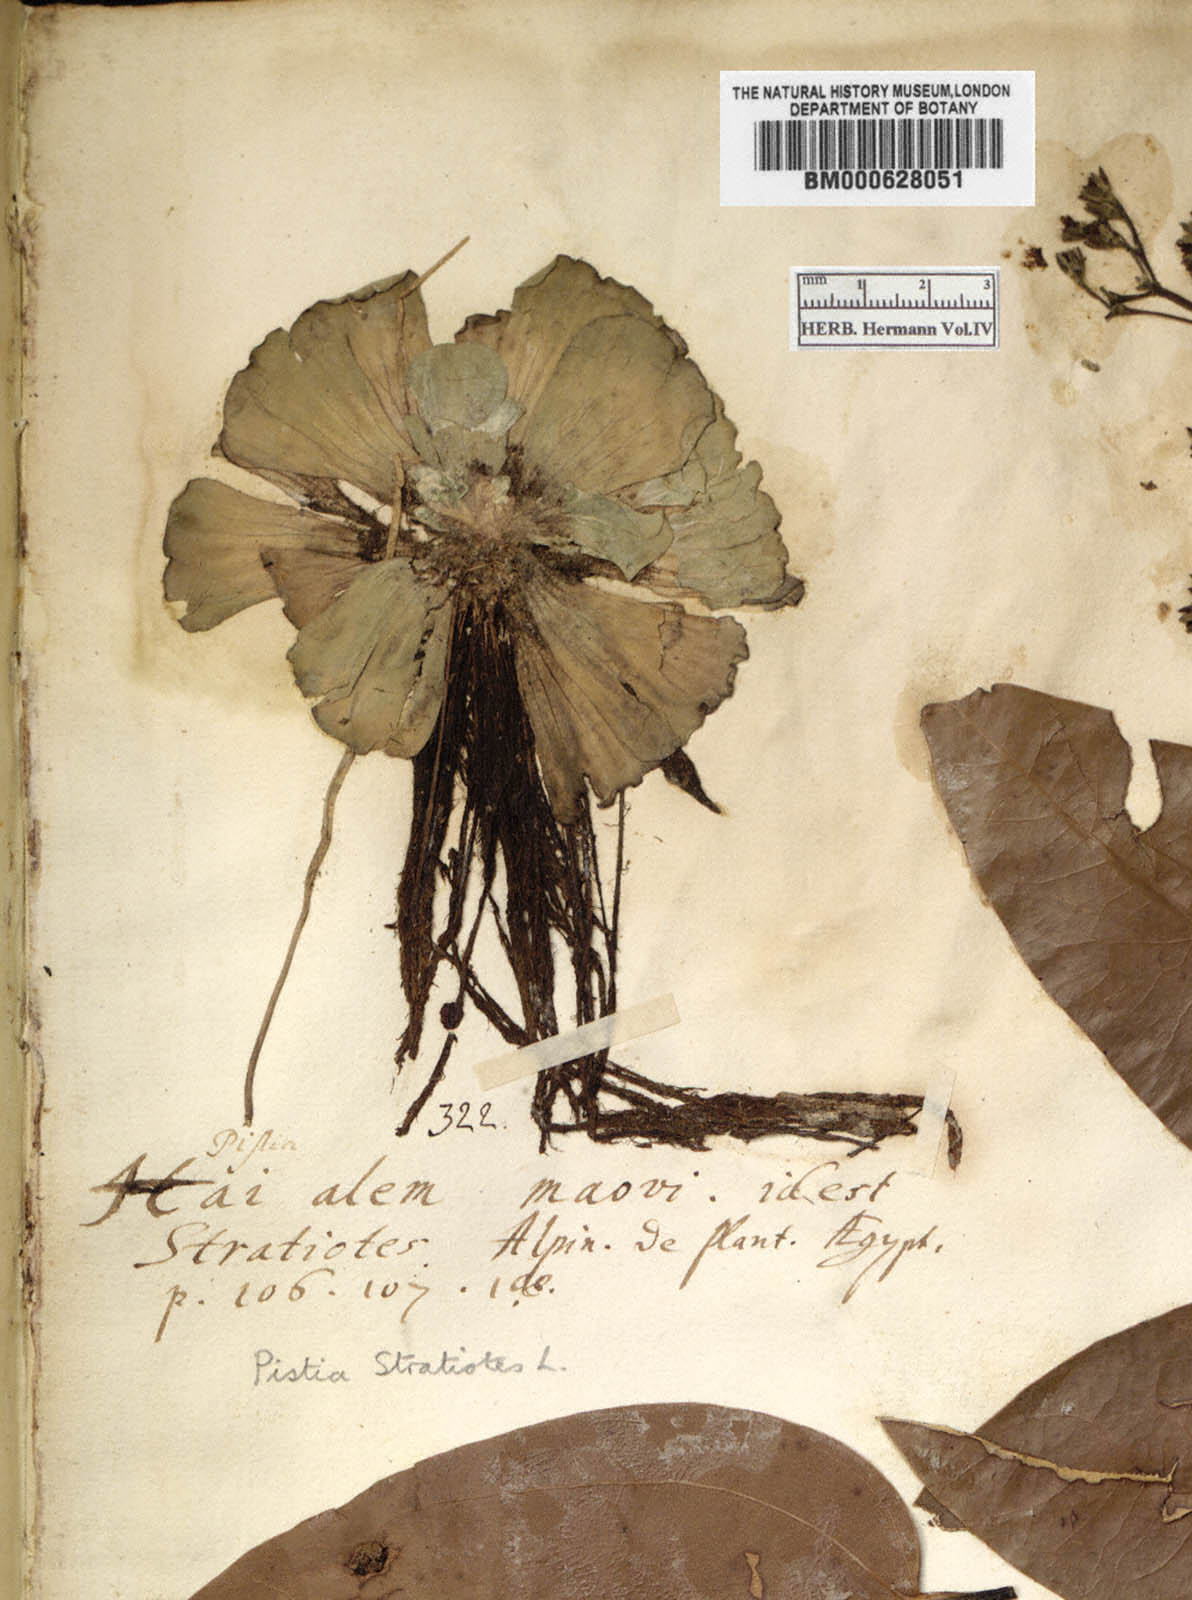 THE NATURAL HISTORY MUSEUM,LONDON
DEPARTMENT OF BOTANY
BM000628051
mm 1 2 3
HERB. Hermann Vol.IV
322.
Pistia
alem maovi. idest
Stratiotes. Alpin. de plant. Ægypt.
p. 106. 107. 108.
Pistia Stratiotes L.